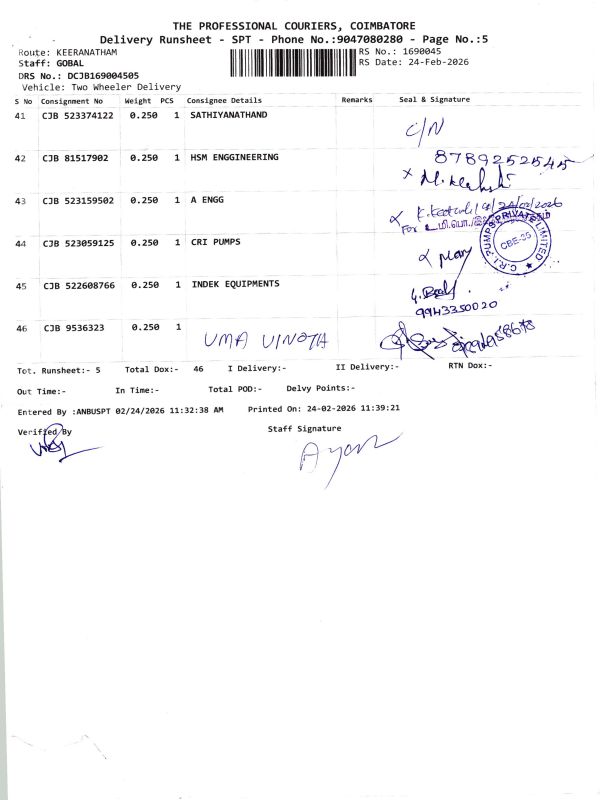 THE PROFESSIONAL COURIERS, COIMBATORE
Delivery Runsheet - SPT - Phone No.:9047080280 - Page No.:5
Route: KEERANATHAM RS No.: 1690045
Staff: GOBAL RS Date: 24-Feb-2026
DRS No.: DCJB169004505
Vehicle: Two Wheeler Delivery
S No Consignment No Weight PCS Consignee Details Remarks Seal & Signature
41 CJB 523374122 0.250 1 SATHIYANATHAND C/N
42 CJB 81517902 0.250 1 HSM ENGGINEERING 8789252545
43 CJB 523159502 0.250 1 A ENGG 24/02/2026
For
44 CJB 523059125 0.250 1 CRI PUMPS
C.R.I. PUMPS PRIVATE LIMITED
CBE-35
45 CJB 522608766 0.250 1 INDEK EQUIPMENTS
9943350020
46 CJB 9536323 0.250 1 UMA VINOTA
Tot. Runsheet:- 5 Total Dox:- 46 I Delivery:- II Delivery:- RTN Dox:-
Out Time:- In Time:- Total POD:- Delvy Points:-
Entered By :ANBUSPT 02/24/2026 11:32:38 AM Printed On: 24-02-2026 11:39:21
Verified By Staff Signature